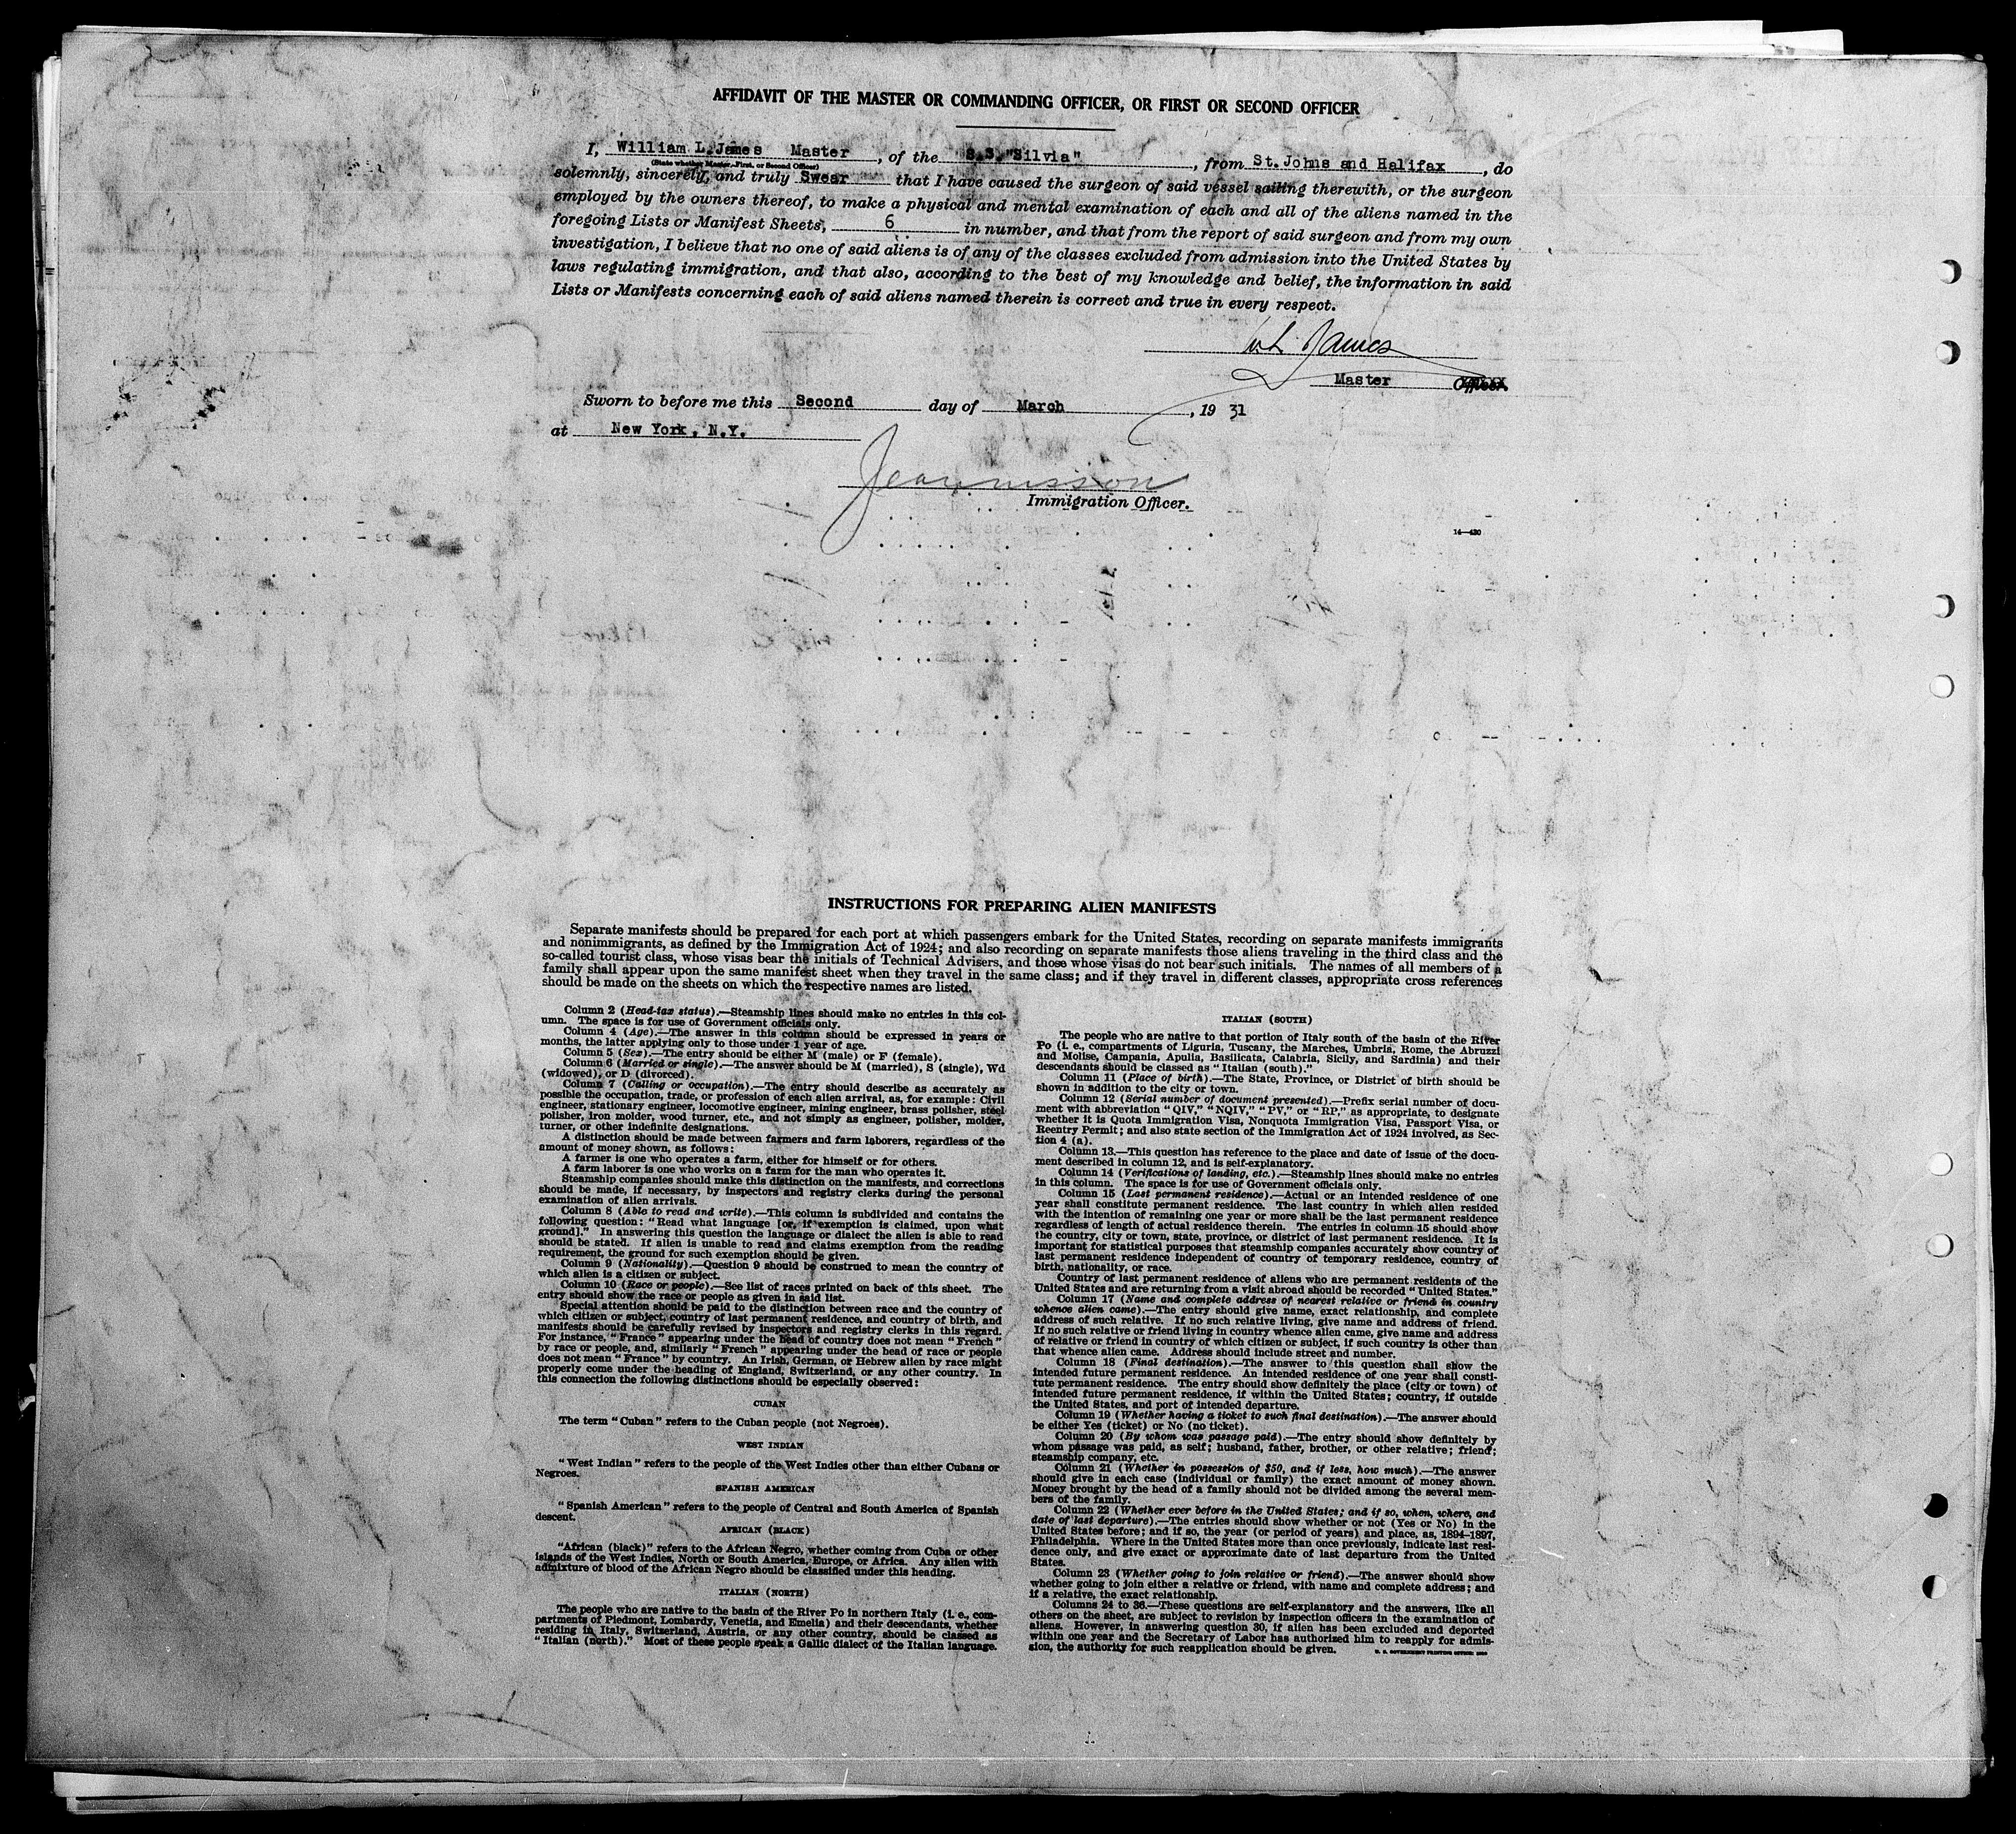 AFFIDAVIT OF THE MASTER OR COMMANDING OFFICER, OR FIRST OR SECOND OFFICER
I, William L. James Master, of the S.S. "Silvia", from St. Johns and Halifax, do
(State whether Master, First, or Second Officer)
solemnly, sincerely, and truly Swear that I have caused the surgeon of said vessel sailing therewith, or the surgeon
employed by the owners thereof, to make a physical and mental examination of each and all of the aliens named in the
foregoing Lists or Manifest Sheets, 6 in number, and that from the report of said surgeon and from my own
investigation, I believe that no one of said aliens is of any of the classes excluded from admission into the United States by
laws regulating immigration, and that also, according to the best of my knowledge and belief, the information in said
Lists or Manifests concerning each of said aliens named therein is correct and true in every respect.
W.L. James
Master Officer.
Sworn to before me this Second day of March, 19 31
at New York, N.Y.
Immigration Officer.
14—430
INSTRUCTIONS FOR PREPARING ALIEN MANIFESTS
Separate manifests should be prepared for each port at which passengers embark for the United States, recording on separate manifests immigrants
and nonimmigrants, as defined by the Immigration Act of 1924; and also recording on separate manifests those aliens traveling in the third class and the
so-called tourist class, whose visas bear the initials of Technical Advisers, and those whose visas do not bear such initials. The names of all members of a
family shall appear upon the same manifest sheet when they travel in the same class; and if they travel in different classes, appropriate cross references
should be made on the sheets on which the respective names are listed.
Column 2 (Head-tax status).—Steamship lines should make no entries in this col-
umn. The space is for use of Government officials only.
Column 4 (Age).—The answer in this column should be expressed in years or
months, the latter applying only to those under 1 year of age.
Column 5 (Sex).—The entry should be either M (male) or F (female).
Column 6 (Married or single).—The answer should be M (married), S (single), Wd
(widowed), or D (divorced).
Column 7 (Calling or occupation).—The entry should describe as accurately as
possible the occupation, trade, or profession of each alien arrival, as, for example: Civil
engineer, stationary engineer, locomotive engineer, mining engineer, brass polisher, steel
polisher, iron molder, wood turner, etc., and not simply as engineer, polisher, molder,
turner, or other indefinite designations.
A distinction should be made between farmers and farm laborers, regardless of the
amount of money shown, as follows:
A farmer is one who operates a farm, either for himself or for others.
A farm laborer is one who works on a farm for the man who operates it.
Steamship companies should make this distinction on the manifests, and corrections
should be made, if necessary, by inspectors and registry clerks during the personal
examination of alien arrivals.
Column 8 (Able to read and write).—This column is subdivided and contains the
following question: "Read what language [or, if exemption is claimed, upon what
ground]." In answering this question the language or dialect the alien is able to read
should be stated. If alien is unable to read and claims exemption from the reading
requirement, the ground for such exemption should be given.
Column 9 (Nationality).—Question 9 should be construed to mean the country of
which alien is a citizen or subject.
Column 10 (Race or people).—See list of races printed on back of this sheet. The
entry should show the race or people as given in said list.
Special attention should be paid to the distinction between race and the country of
which citizen or subject, country of last permanent residence, and country of birth, and
manifests should be carefully revised by inspectors and registry clerks in this regard.
For instance, "France" appearing under the head of country does not mean "French"
by race or people, and, similarly "French" appearing under the head of race or people
does not mean "France" by country. An Irish, German, or Hebrew alien by race might
properly come under the heading of England, Switzerland, or any other country. In
this connection the following distinctions should be especially observed:
CUBAN
The term "Cuban" refers to the Cuban people (not Negroes).
WEST INDIAN
"West Indian" refers to the people of the West Indies other than either Cubans or
Negroes.
SPANISH AMERICAN
"Spanish American" refers to the people of Central and South America of Spanish
descent.
AFRICAN (BLACK)
"African (black)" refers to the African Negro, whether coming from Cuba or other
islands of the West Indies, North or South America, Europe, or Africa. Any alien with
admixture of blood of the African Negro should be classified under this heading.
ITALIAN (NORTH)
The people who are native to the basin of the River Po in northern Italy (i. e., com-
partments of Piedmont, Lombardy, Venetia, and Emelia) and their descendants, whether
residing in Italy, Switzerland, Austria, or any other country, should be classed as
"Italian (north)." Most of these people speak a Gallic dialect of the Italian language.
ITALIAN (SOUTH)
The people who are native to that portion of Italy south of the basin of the River
Po (i. e., compartments of Liguria, Tuscany, the Marches, Umbria, Rome, the Abruzzi
and Molise, Campania, Apulia, Basilicata, Calabria, Sicily, and Sardinia) and their
descendants should be classed as "Italian (south)."
Column 11 (Place of birth).—The State, Province, or District of birth should be
shown in addition to the city or town.
Column 12 (Serial number of document presented).—Prefix serial number of docu-
ment with abbreviation "QIV," "NQIV," "PV," or "RP," as appropriate, to designate
whether it is Quota Immigration Visa, Nonquota Immigration Visa, Passport Visa, or
Reentry Permit; and also state section of the Immigration Act of 1924 involved, as Sec-
tion 4 (a).
Column 13.—This question has reference to the place and date of issue of the docu-
ment described in column 12, and is self-explanatory.
Column 14 (Verifications of landing, etc.).—Steamship lines should make no entries
in this column. The space is for use of Government officials only.
Column 15 (Last permanent residence).—Actual or an intended residence of one
year shall constitute permanent residence. The last country in which alien resided
with the intention of remaining one year or more shall be the last permanent residence
regardless of length of actual residence therein. The entries in column 15 should show
the country, city or town, state, province, or district of last permanent residence. It is
important for statistical purposes that steamship companies accurately show country of
last permanent residence independent of country of temporary residence, country of
birth, nationality, or race.
Country of last permanent residence of aliens who are permanent residents of the
United States and are returning from a visit abroad should be recorded "United States."
Column 17 (Name and complete address of nearest relative or friend in country
whence alien came).—The entry should give name, exact relationship, and complete
address of such relative. If no such relative living, give name and address of friend.
If no such relative or friend living in country whence alien came, give name and address
of relative or friend in country of which citizen or subject, if such country is other than
that whence alien came. Address should include street and number.
Column 18 (Final destination).—The answer to this question shall show the
intended future permanent residence. An intended residence of one year shall consti-
tute permanent residence. The entry should show definitely the place (city or town) of
intended future permanent residence, if within the United States; country, if outside
the United States, and port of intended departure.
Column 19 (Whether having a ticket to such final destination).—The answer should
be either Yes (ticket) or No (no ticket).
Column 20 (By whom was passage paid).—The entry should show definitely by
whom passage was paid, as self; husband, father, brother, or other relative; friend;
steamship company, etc.
Column 21 (Whether in possession of $50, and if less, how much).—The answer
should give in each case (individual or family) the exact amount of money shown.
Money brought by the head of a family should not be divided among the several mem-
bers of the family.
Column 22 (Whether ever before in the United States; and if so, when, where, and
date of last departure).—The entries should show whether or not (Yes or No) in the
United States before; and if so, the year (or period of years) and place, as, 1894–1897,
Philadelphia. Where in the United States more than once previously, indicate last resi-
dence only, and give exact or approximate date of last departure from the United
States.
Column 23 (Whether going to join relative or friend).—The answer should show
whether going to join either a relative or friend, with name and complete address; and
if a relative, the exact relationship.
Columns 24 to 36.—These questions are self-explanatory and the answers, like all
others on the sheet, are subject to revision by inspection officers in the examination of
aliens. However, in answering question 30, if alien has been excluded and deported
within one year and the Secretary of Labor has authorized him to reapply for admis-
sion, the authority for such reapplication should be given.
U. S. GOVERNMENT PRINTING OFFICE: